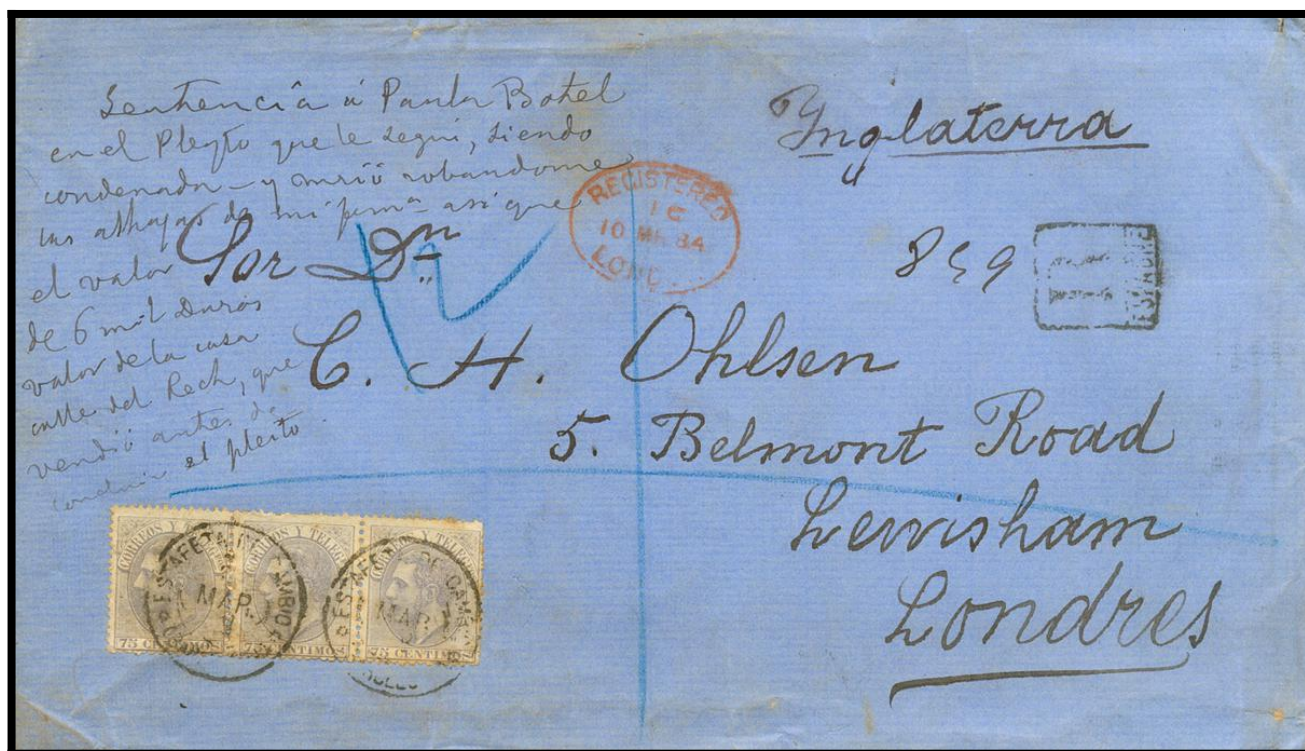 Sentencia á Paula Botel
en el Pleyto que le seguí, siendo
condenada - y murió robandome
las alhajas de mi asi que
el valor
de 6 mil duros
valor de la casa
calle del Rech, que
vendió antes de
concluir el pleito
Ynglaterra
REGISTERED
1 C
10 MR 84
LOND
859
Sor Dn
C. H. Ohlsen
5. Belmont Road
Lewisham
Londres
CORREOS Y TELEG
CORREOS Y TELEG
CORREOS Y TELEG
75 CENTIMOS
75 CENTIMOS
75 CENTIMOS
ESTAFETA DE CAMBIO
MAR
ESTAFETA DE CAMB
MAR